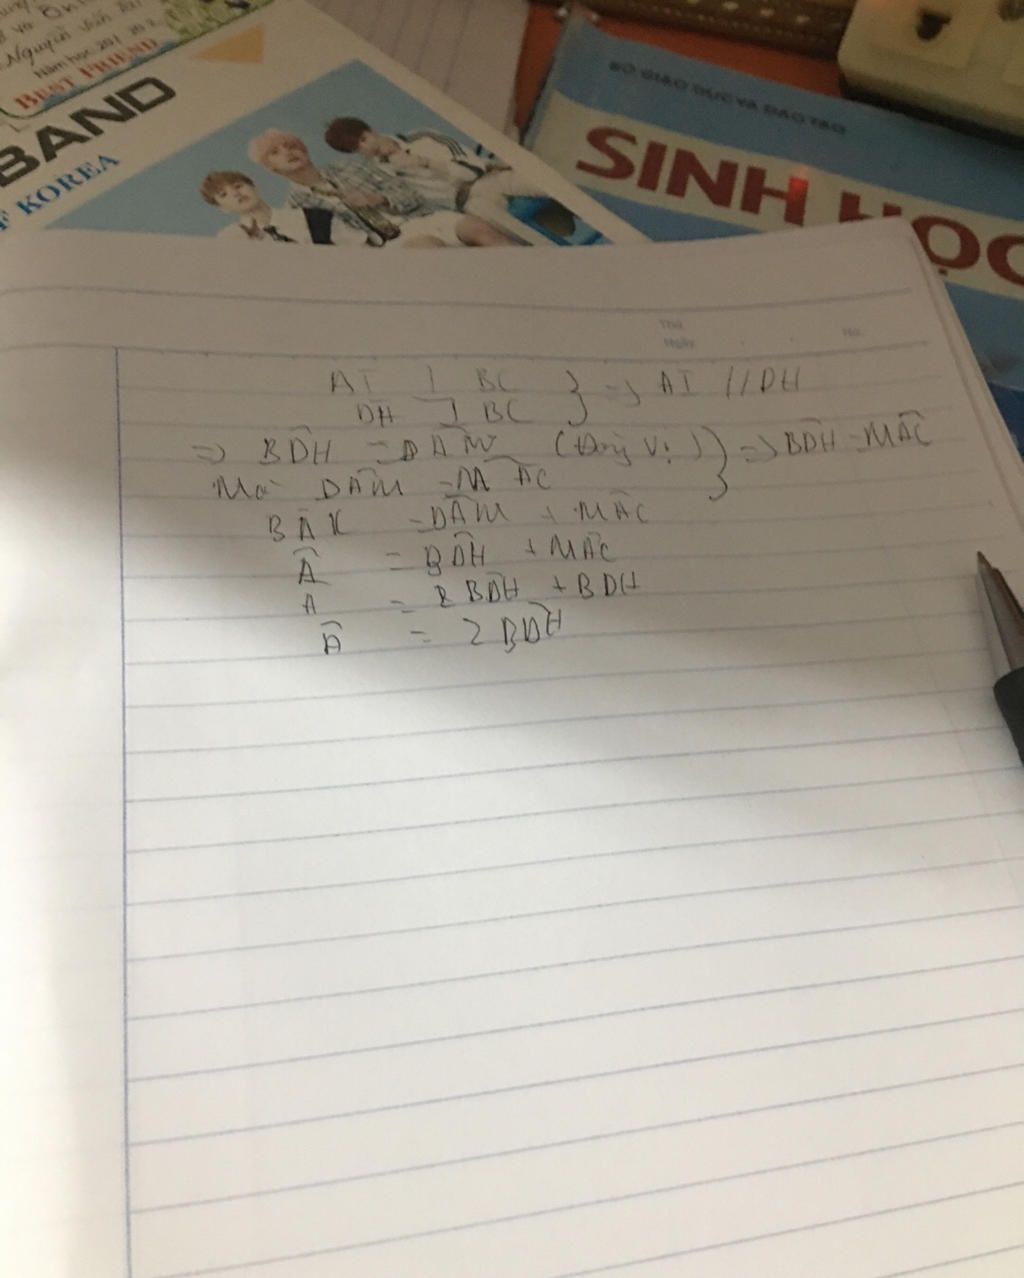 Nguyễn Văn
Năm học 201 20
BEST FRIEND
BAND
KOREA
BỘ GIÁO DỤC VÀ ĐÀO TẠO
SINH HỌC
Thứ
Ngày
No.
AI ⊥ BC } => AI // DH
DH ⊥ BC
=> BDH = DAM (đồng vị) } => BDH = MAC
Mà DAM = MAC
BAK = DAM + MAC
A = BDH + MAC
A = 2 BDH + BDH
A = 2 BDH